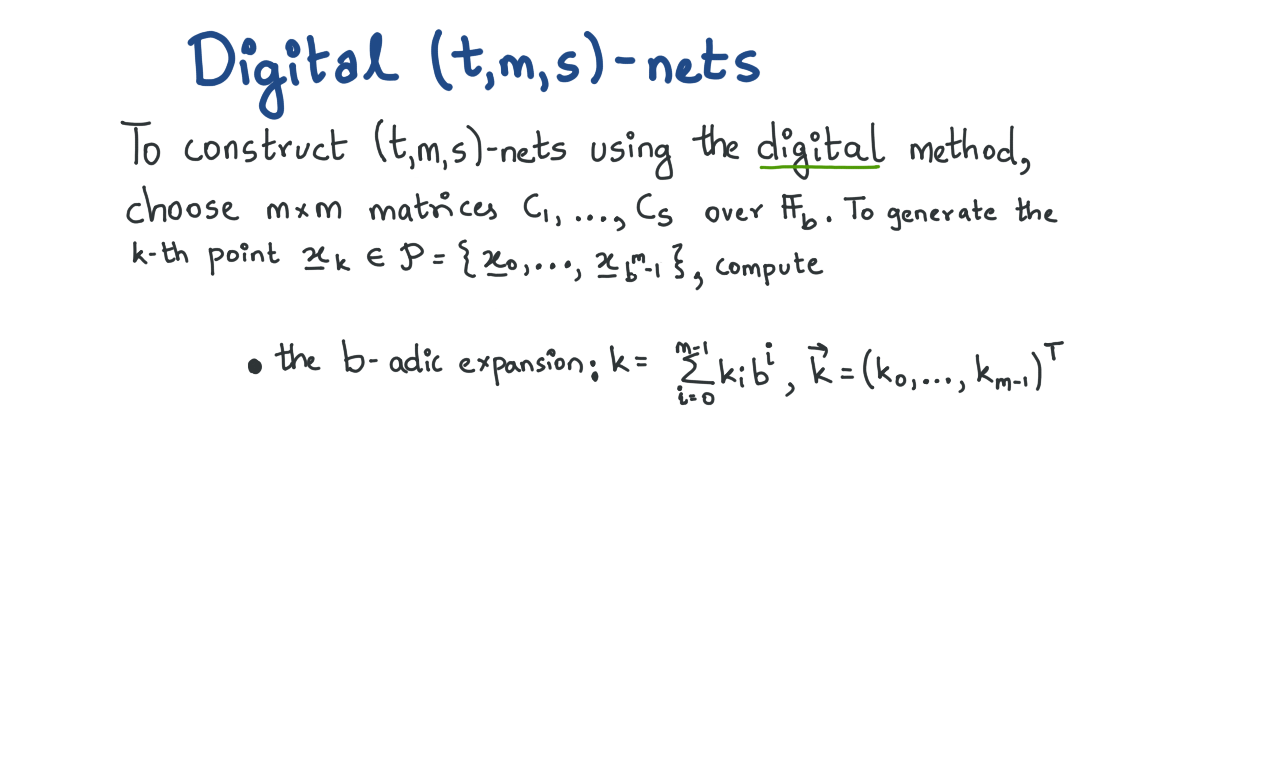 Digital (t,m,s)-nets
To construct (t,m,s)-nets using the digital method,
choose m×m matrices C₁, ..., Cₛ over 𝔽_b. To generate the
k-th point x̲ₖ ∈ P = {x̲₀, ..., x̲_{b^m-1}}, compute
• the b-adic expansion: k = ∑_{i=0}^{m-1} kᵢ bⁱ, k⃗ = (k₀, ..., k_{m-1})ᵀ